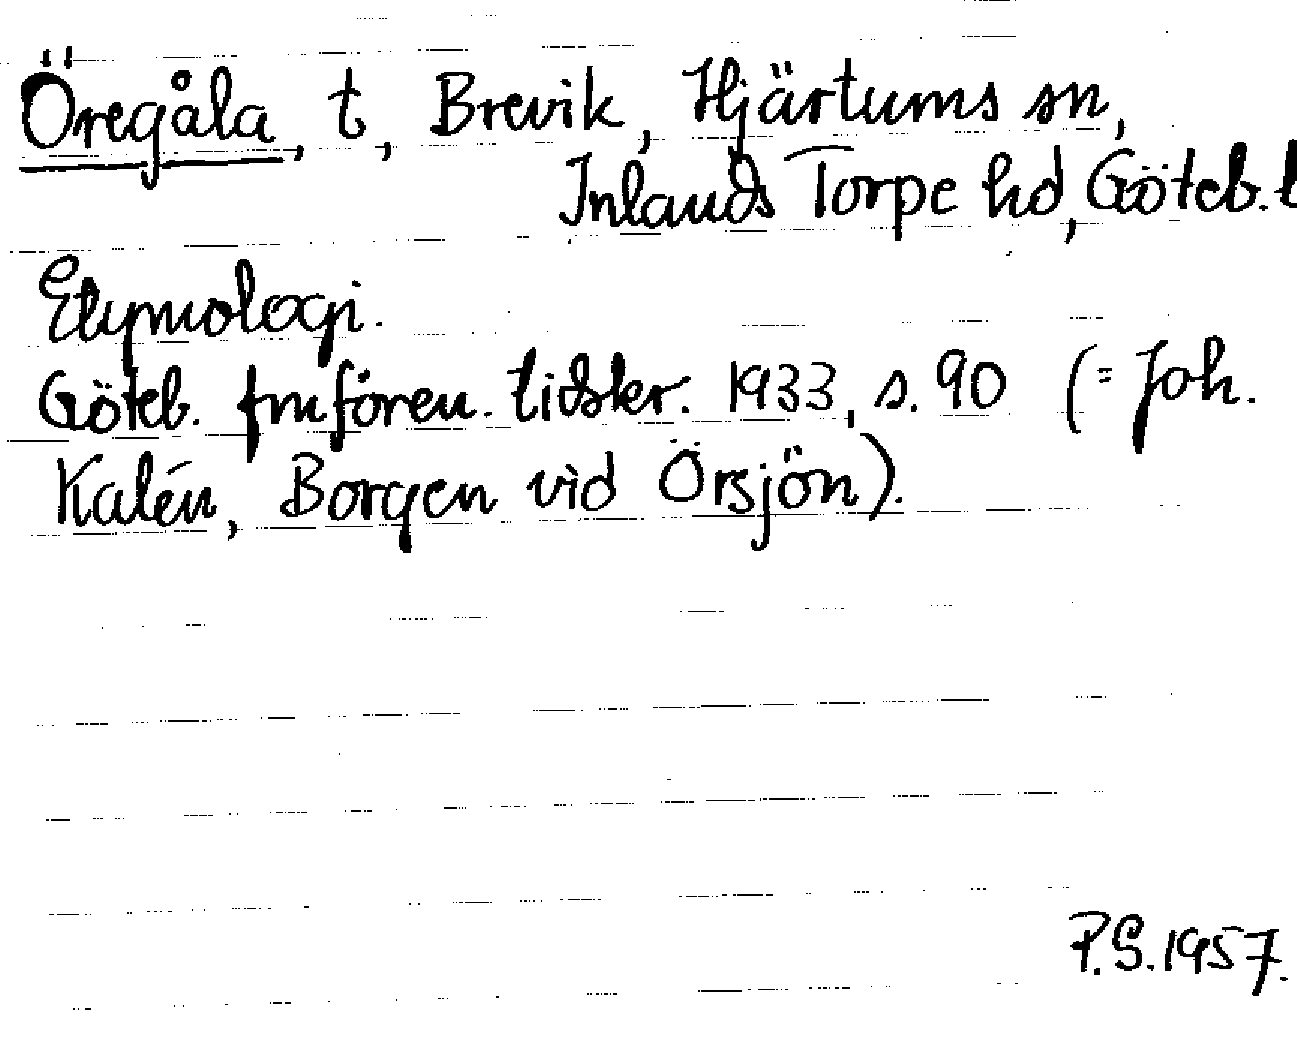 Öregåla, t, Brevik, Hjärtums sn,
Inlands Torpe hd, Göteb. l
Etymologi.
Göteb. fmfören. tidskr. 1933, s. 90 (= Joh.
Kalén, Borgen vid Örsjön).
P.S. 1957.